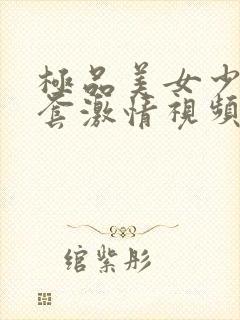 極品美女少
套激情視頻
綰紫彤